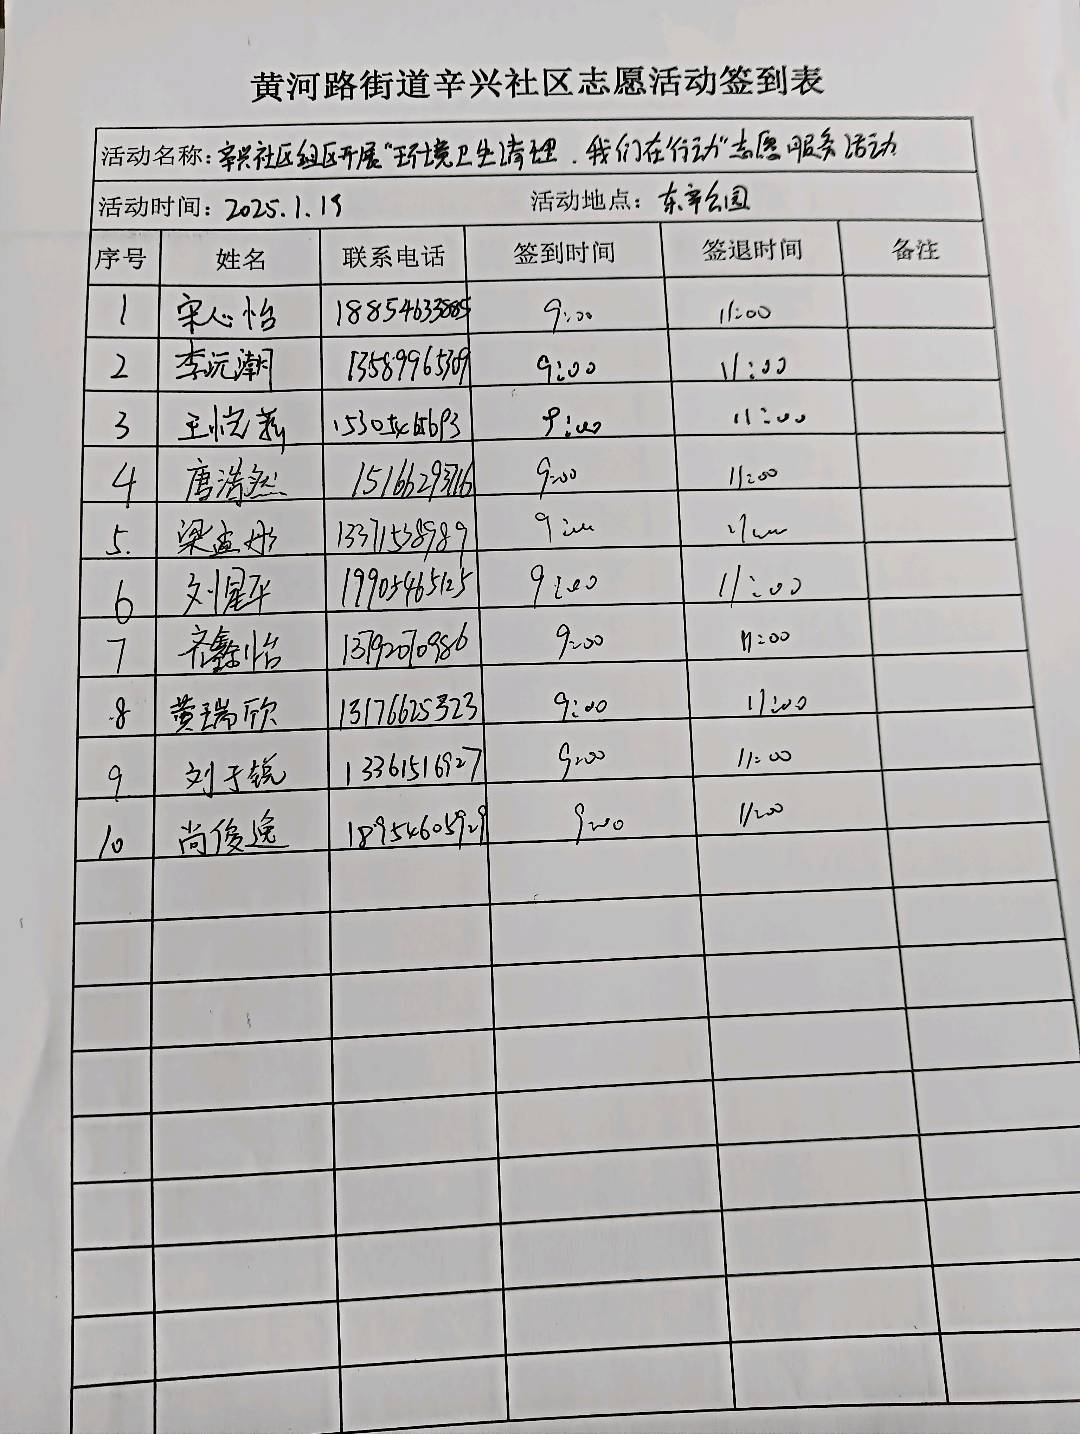 黄河路街道辛兴社区志愿活动签到表
活动名称：辛兴社区组区开展“环境卫生清理，我们在行动”志愿服务活动
活动时间：2025.1.19 活动地点：东辛公园
序号 姓名 联系电话 签到时间 签退时间 备注
1 宋心怡 18854633885 9:00 11:00
2 李沅潮 13589965309 9:00 11:00
3 王悦 15305465693 9:00 11:00
4 唐浩然 15166293716 9:00 11:00
5. 梁孟彤 13371538989 9:00
6 刘星华 19905465125 9:00 11:00
7 齐鑫怡 13792070986 9:00 11:00
8 黄瑞欣 13176625323 9:00 11:00
9 刘于锐 13361516927 9:00 11:00
10 尚俊逸 18954605929 9:00 11:00